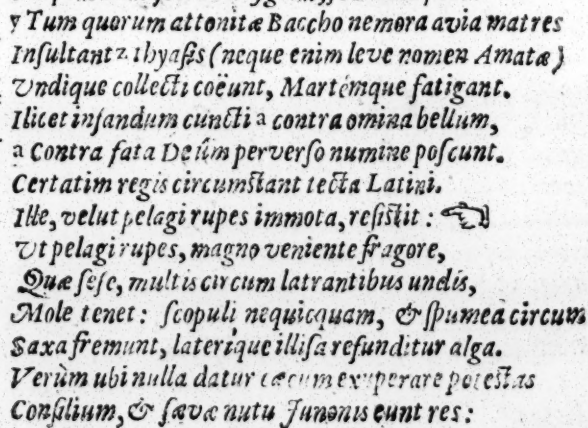 y Tum quorum attonitæ Baccho nemora avia matres
Inſultant z thyaſis (neque enim leve nomen Amatæ)
Vndique collecti coëunt, Martémque fatigant.
Ilicet infandum cuncti a contra omina bellum,
a Contra fata Deûm perverſo numine poſcunt.
Certatim regis circumſtant tecta Latini.
Ille, velut pelagi rupes immota, reſiſtit : ☜
Vt pelagi rupes, magno veniente fragore,
Quæ ſeſe, multis circum latrantibus undis,
Mole tenet : ſcopuli nequicquam, & ſpumea circum
Saxa fremunt, laterique illiſa refunditur alga.
Verùm ubi nulla datur cæcum exuperare poteſtas
Conſilium, & ſævæ nutu Junonis eunt res :